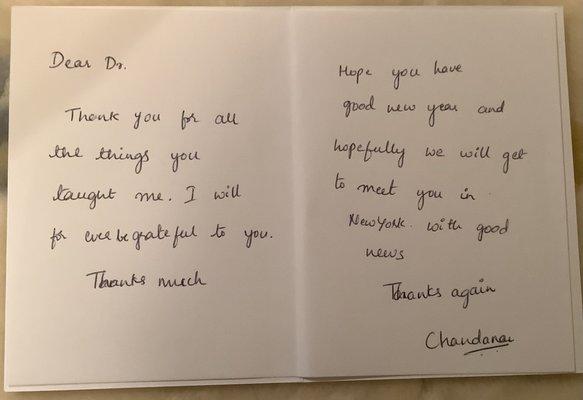 Dear Dr.
Thank you for all
the things you
taught me. I will
for ever be grateful to you.
Thanks much
Hope you have
good new year and
hopefully we will get
to meet you in
New York. with good
news
Thanks again
Chandana